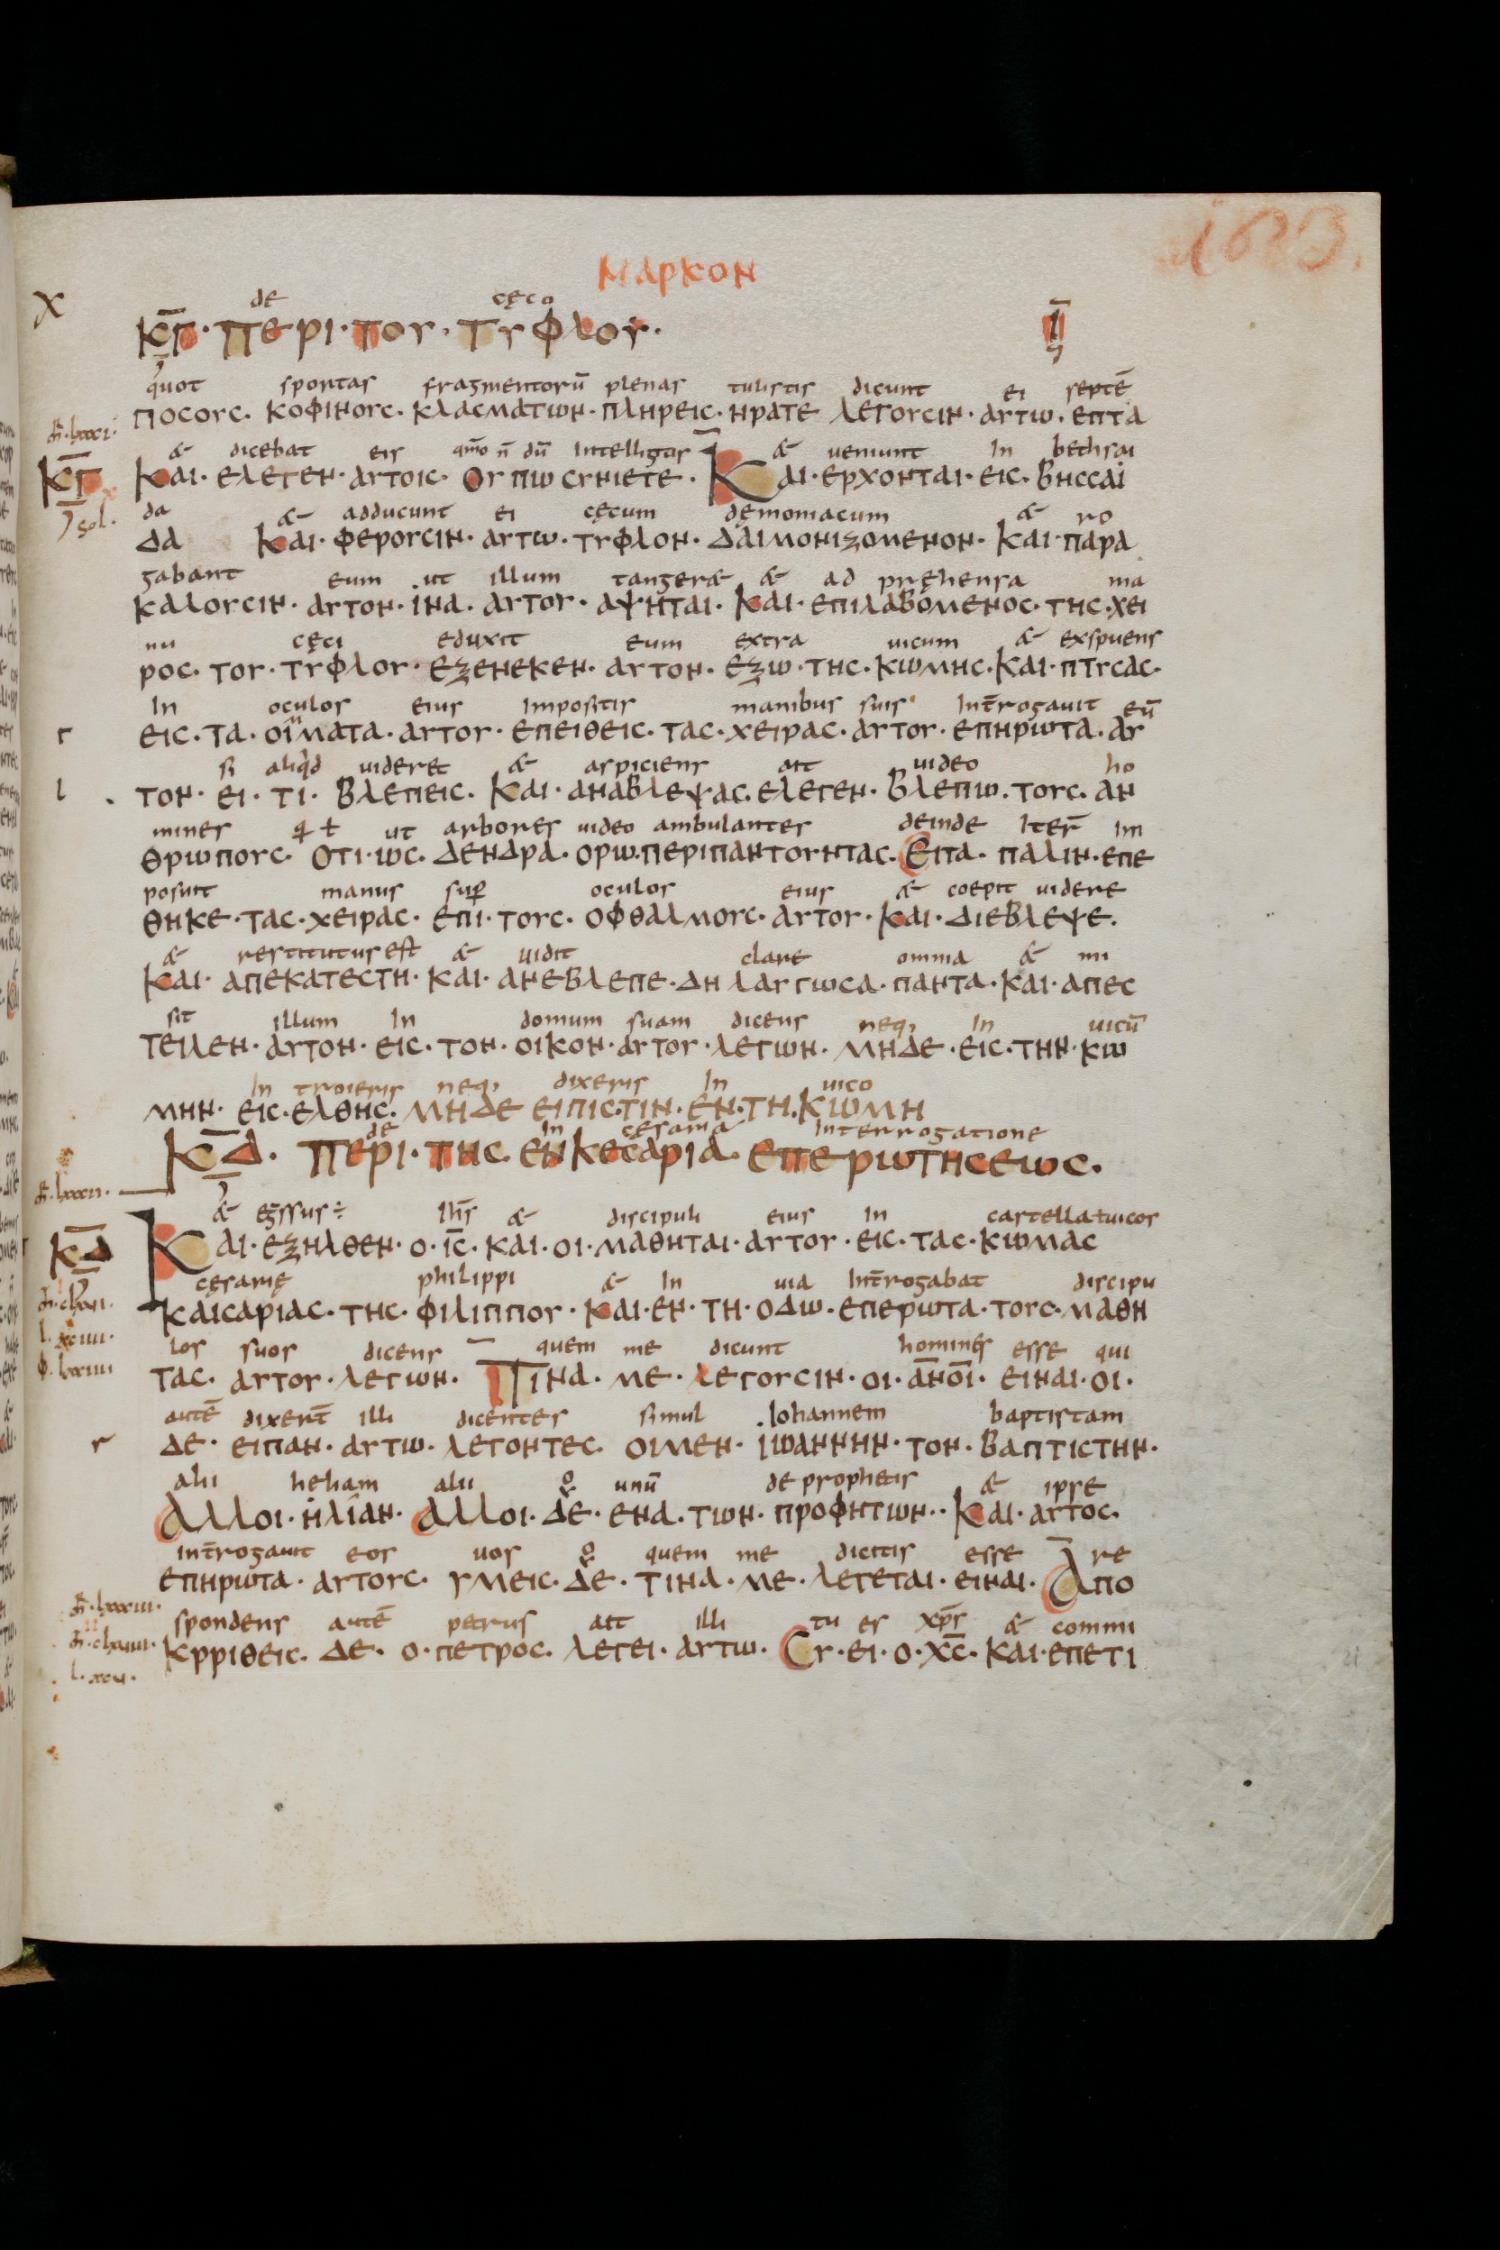 ΜΑΡΚΟΝ
163.
χ
de cęco
ΚΓ· ΠΕΡΙ· ΤΟΥ· ΤΥΦΛΟΥ·
quot sportas fragmentorū plenas tulistis dicunt ei septē
ΠΟΣΟΥΣ· ΚΟΦΙΝΟΥΣ· ΚΛΑΣΜΑΤΩΝ· ΠΛΗΡΕΙΣ· ΗΡΑΤΕ ΛΕΓΟΥΣΙΝ· ΑΥΤΩ· ΕΠΤΑ
& dicebat eis qmō n̄ dū Intelligitis & ueniunt In bethsai
ΚΓ ΚΑΙ· ΕΛΕΓΕΝ· ΑΥΤΟΙΣ· ΟΥ ΠΩ ΣΥΝΙΕΤΕ· ΚΑΙ· ΕΡΧΟΝΤΑΙ· ΕΙΣ· ΒΗΣΣΑΙ
sol.
da & adducunt ei cęcum dęmoniacum & ro
ΔΑ ΚΑΙ· ΦΕΡΟΥΣΙΝ· ΑΥΤΩ· ΤΥΦΛΟΝ· ΔΑΙΜΟΝΙΖΟΜΕΝΟΝ· ΚΑΙ· ΠΑΡΑ
gabant eum ut illum tanger& & ad pręhensa ma
ΚΑΛΟΥΣΙΝ· ΑΥΤΟΝ· ΙΝΑ· ΑΥΤΟΥ· ΑΨΗΤΑΙ· ΚΑΙ· ΕΠΙΛΑΒΟΜΕΝΟΣ· ΤΗΣ· ΧΕΙ
nu cęci eduxit eum extra uicum & exspuens
ΡΟΣ· ΤΟΥ· ΤΥΦΛΟΥ· ΕΞΕΝΕΚΕΝ· ΑΥΤΟΝ· ΕΞΩ· ΤΗΣ· ΚΩΜΗΣ· ΚΑΙ· ΠΤΥΣΑΣ·
In oculos eius Impositis manibus suis Int̄rogauit eū
Γ ΕΙΣ· ΤΑ· ΟΜΜΑΤΑ· ΑΥΤΟΥ· ΕΠΕΙΘΕΙΣ· ΤΑΣ· ΧΕΙΡΑΣ· ΑΥΤΟΥ· ΕΠΗΡΩΤΑ· ΑΥ
si aliqd uideret & aspiciens ait uideo ho
l ΤΟΝ· ΕΙ· ΤΙ· ΒΛΕΠΕΙΣ· ΚΑΙ· ΑΝΑΒΛΕΨΑΣ· ΕΛΕΓΕΝ· ΒΛΕΠΩ· ΤΟΥΣ· ΑΝ
mines ut arbores uideo ambulantes deinde Iter̄ Im
ΘΡΩΠΟΥΣ· ΟΤΙ· ΩΣ· ΔΕΝΔΡΑ· ΟΡΩ· ΠΕΡΙΠΑΝΤΟΥΝΤΑΣ· ΕΙΤΑ· ΠΑΛΙΝ· ΕΠΕ
posuit manus sup̄ oculos eius & coepit uidere
ΘΗΚΕ· ΤΑΣ· ΧΕΙΡΑΣ· ΕΠΙ· ΤΟΥΣ· ΟΦΘΑΛΜΟΥΣ· ΑΥΤΟΥ· ΚΑΙ· ΔΙΕΒΛΕΨΕ·
& restitutus est & uidit clare omnia & mi
ΚΑΙ· ΑΠΕΚΑΤΕΣΤΗ· ΚΑΙ· ΑΝΕΒΛΕΠΕ· ΔΗ ΛΑΥΓΩΣΑ· ΠΑΝΤΑ· ΚΑΙ· ΑΠΕΣ
sit illum In domum suam dicens neq, In uicū
ΤΕΙΛΕΝ· ΑΥΤΟΝ· ΕΙΣ· ΤΟΝ· ΟΙΚΟΝ· ΑΥΤΟΥ· ΛΕΓΩΝ· ΜΗΔΕ· ΕΙΣ· ΤΗΝ· ΚΩ
In troieris neq, dixeris In uico
ΜΗΝ· ΕΙΣ· ΕΛΘΗΣ· ΜΗΔΕ ΕΙΠΙΣ· ΤΙΝ· ΕΝ· ΤΗ· ΚΩΜΗ
de In cęsaria Interrogatione
ΚΔ· ΠΕΡΙ· ΤΗΣ· ΕΝ ΚΕΣΑΡΙΑ· ΕΠΕΡΩΤΗΣΕΩΣ·
& eḡssus ÷ Ihs̄ & discipuli eius In castella ł uicos
ΚΔ ΚΑΙ· ΕΞΗΛΘΕΝ· Ο· ΙΣ̄· ΚΑΙ· ΟΙ· ΜΑΘΗΤΑΙ· ΑΥΤΟΥ· ΕΙΣ· ΤΑΣ· ΚΩΜΑΣ
cęsarię philippi & In uia Int̄rogabat discipu
ΚΑΙΣΑΡΙΑΣ· ΤΗΣ· ΦΙΛΙΠΠΟΥ· ΚΑΙ· ΕΝ· ΤΗ· ΟΔΩ· ΕΠΕΡΩΤΑ· ΤΟΥΣ· ΜΑΘΗ
los suos dicens quem me dicunt homines esse qui
ΤΑΣ· ΑΥΤΟΥ· ΛΕΓΩΝ· ΤΙΝΑ· ΜΕ· ΛΕΓΟΥΣΙΝ· ΟΙ· ΑΝ̄ΟΙ· ΕΙΝΑΙ· ΟΙ·
autē dixer̄t illi dicentes simul Iohannem baptistam
r ΔΕ· ΕΙΠΑΝ· ΑΥΤΩ· ΛΕΓΟΝΤΕΣ· ΟΙ ΜΕΝ· ΙΩΑΝΝΗΝ· ΤΟΝ· ΒΑΠΤΙΣΤΗΝ·
alii heliam alii unū de prophetis & ipse
ΑΛΛΟΙ· ΗΛΙΑΝ· ΑΛΛΟΙ· ΔΕ· ΕΝΑ· ΤΩΝ· ΠΡΟΦΗΤΩΝ·· ΚΑΙ· ΑΥΤΟΣ·
int̄rogauit eos uos quem me dicitis esse re
ΕΠΗΡΩΤΑ· ΑΥΤΟΥΣ· ΥΜΕΙΣ· ΔΕ· ΤΙΝΑ· ΜΕ· ΛΕΓΕΤΑΙ· ΕΙΝΑΙ· ΑΠΟ
spondens autē petrus ait illi tu es xp̄s & commi
ΚΡΡΙΘΕΙΣ· ΔΕ· Ο· ΠΕΤΡΟΣ· ΛΕΓΕΙ· ΑΥΤΩ· ΣΥ· ΕΙ· Ο· ΧΣ̄· ΚΑΙ· ΕΠΕΤΙ